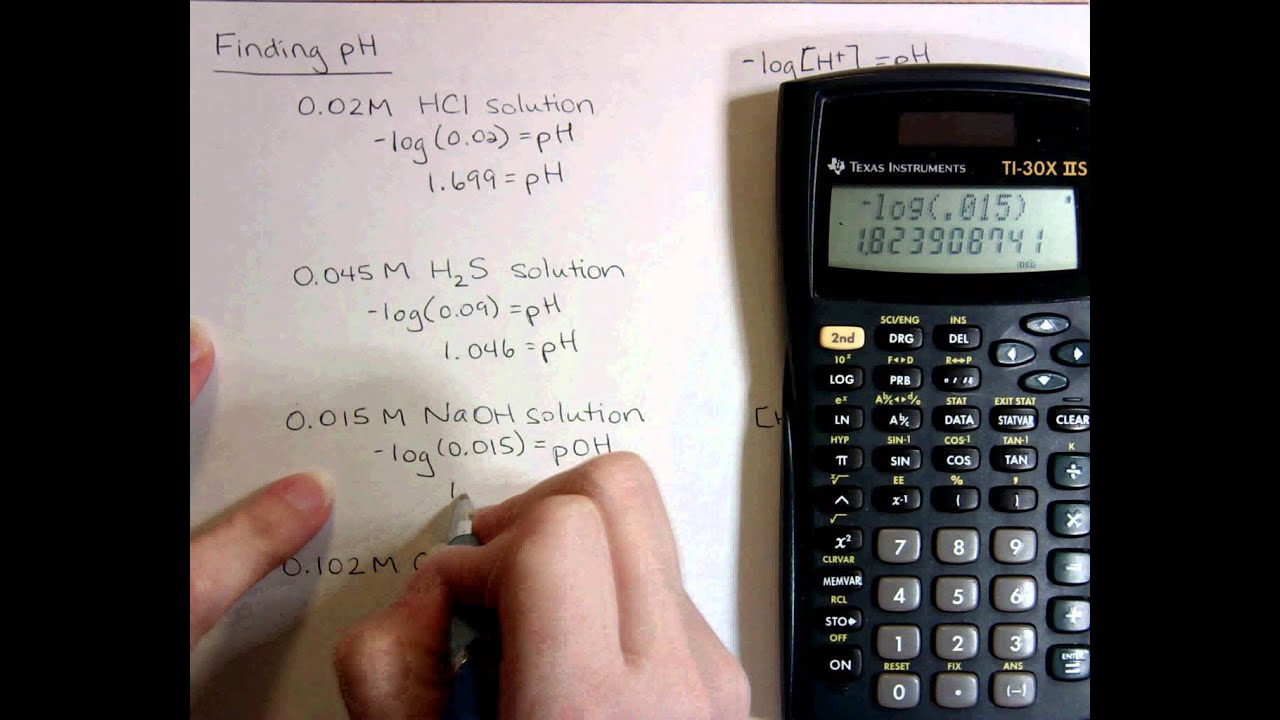 Finding pH
-log[H+] = pH
0.02M HCl solution
-log(0.02) = pH
1.699 = pH
0.045 M H₂S solution
-log(0.09) = pH
1.046 = pH
0.015 M NaOH solution
-log(0.015) = pOH
1.
0.102M
[H
TEXAS INSTRUMENTS TI-30X IIS
-log(.015)
1.823908741
DEG
SCI/ENG INS
2nd DRG DEL
10ˣ F◄►D R↔P
LOG PRB ° ' "
eˣ Ab/c◄►d/e STAT EXIT STAT
LN Ab/c DATA STATVAR CLEAR
HYP SIN-1 COS-1 TAN-1 K
π SIN COS TAN ÷
ˣ√ EE % ,
^ x-1 ( ) ×
√
x² 7 8 9 −
CLRVAR
MEMVAR 4 5 6 +
RCL
STO► 1 2 3
OFF RESET FIX ANS ENTER
ON 0 . (−) =